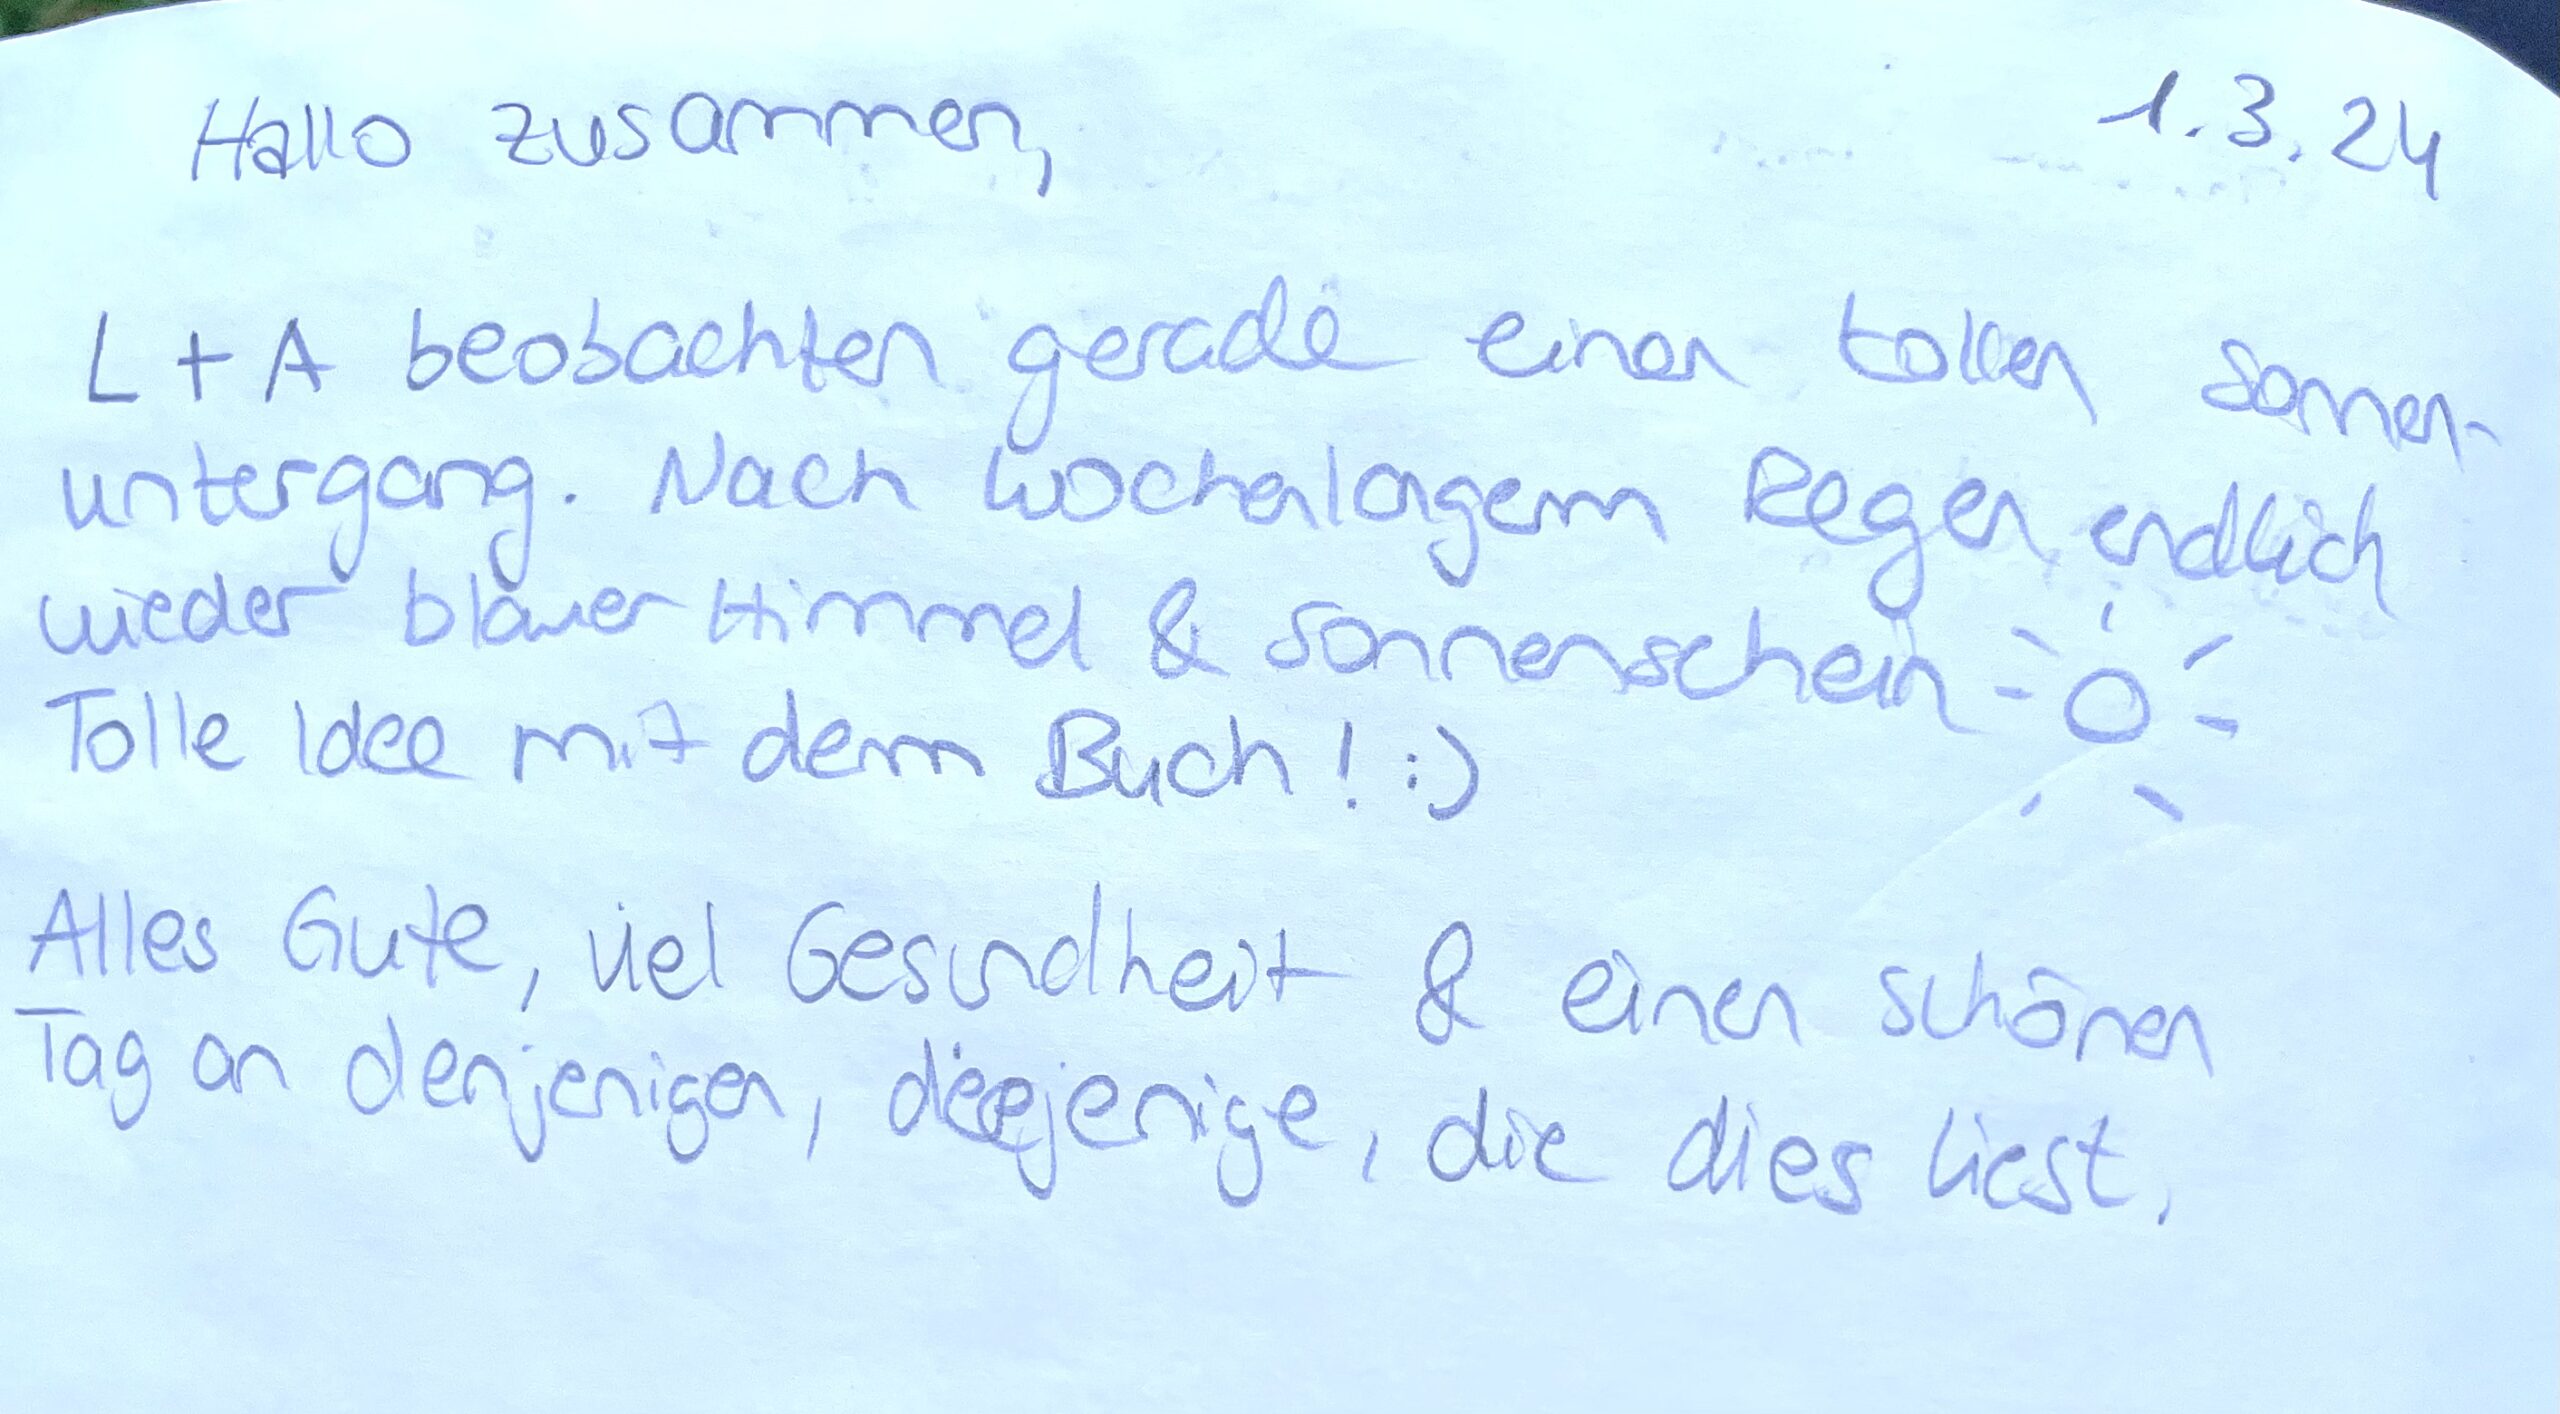 Hallo zusammen, 1.3.24
L + A beobachten gerade einen tollen Sonnen-
untergang. Nach wochenlangem Regen endlich
wieder blauer Himmel & Sonnenschein
Tolle Idee mit dem Buch! :)
Alles Gute, viel Gesundheit & einen schönen
Tag an denjenigen, diejenige, die dies liest.